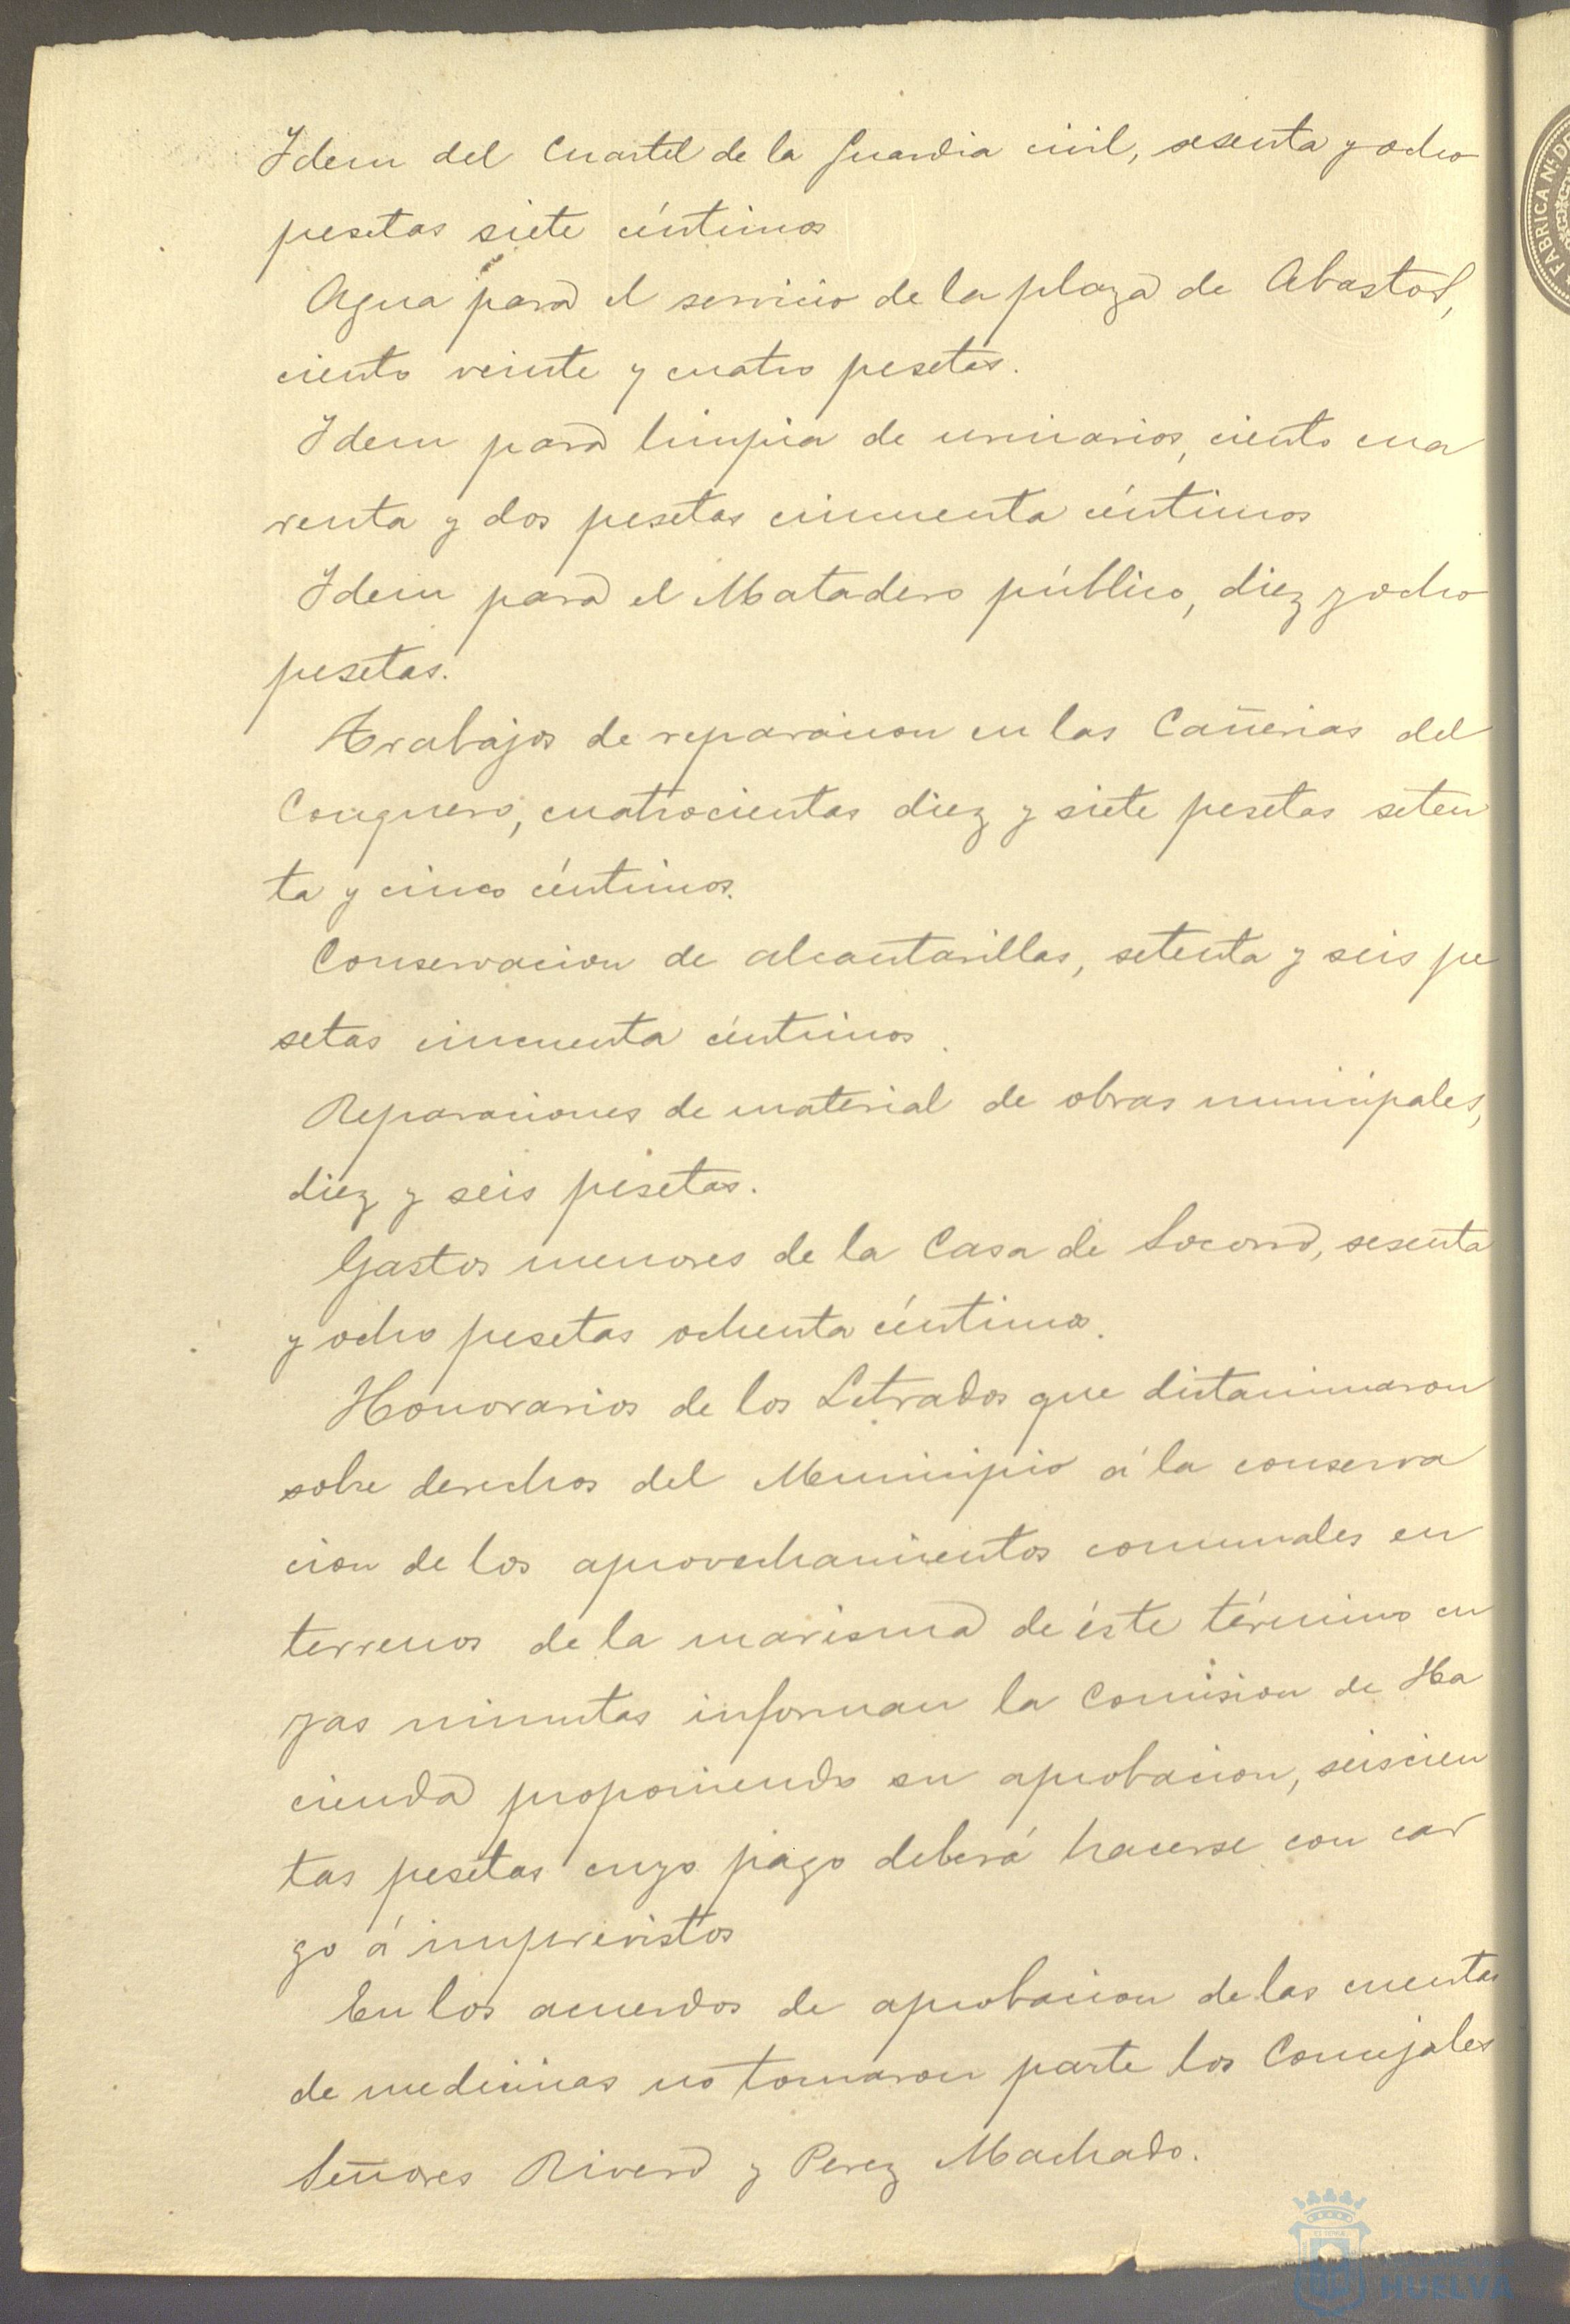 Idem del Cuartel de la Guardia civil, sesenta y ocho
pesetas siete céntimos
Agua para el servicio de la plaza de Abastos,
ciento veinte y cuatro pesetas.
Idem para limpia de urinarios, ciento cua
renta y dos pesetas cincuenta céntimos
Idem para el Matadero público, diez y ocho
pesetas.
Trabajos de reparacion en las Cañerias del
Conquero, cuatrocientas diez y siete pesetas seten
ta y cinco céntimos.
Conservacion de alcantarillas, setenta y seis pe
setas cincuenta céntimos.
Reparaciones de material de obras municipales,
diez y seis pesetas.
Gastos menores de la Casa de Socorro, sesenta
y ocho pesetas ochenta céntimos.
Honorarios de los Letrados que dictaminaron
sobre derechos del Municipio á la conserva
cion de los aprovechamientos comunales en
terrenos de la marisma de éste término cu
yas minutas informan la Comision de Ha
cienda proponiendo su aprobacion, seiscien
tas pesetas cuyo pago deberá hacerse con car
go á imprevistos
En los acuerdos de aprobacion de las cuentas
de medicinas no tomaron parte los Concejales
Señores Rivero y Perez Machado.
FABRICA N.
HUELVA